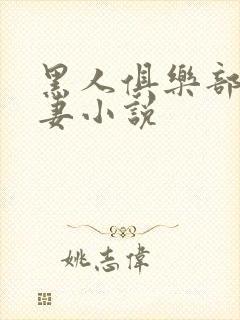 黑人俱樂部
妻小說
姚志偉